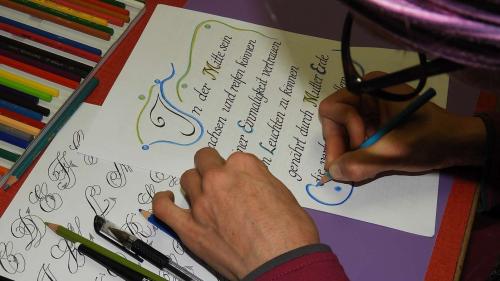 In der Mitte sein
achsen und reifen können
ner Einmaligkeit vertrauen
Leuchten zu können
genährt durch Mutter Erde
die